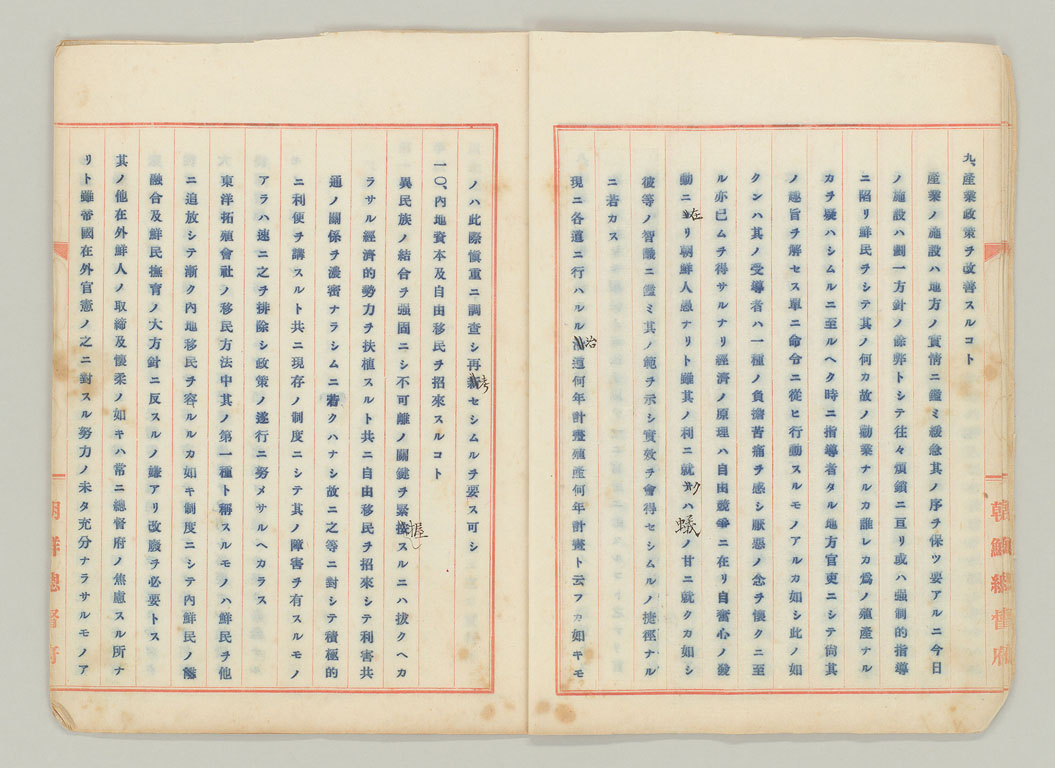 九、產業政策ヲ改善スルコト
產業ノ施設ハ地方ノ實情ニ鑑ミ緩急其ノ序ヲ保ツ要アルニ今日
ノ施設ハ劃一方針ノ餘弊トシテ往々煩鎖ニ亘リ或ハ强制的指導
ニ陷リ鮮民ヲシテ其ノ何カ故ノ勸業ナルカ誰レカ爲ノ殖產ナル
カヲ疑ハシムルニ至ルヘク時ニ指導者タル地方官吏ニシテ尙其
ノ趣旨ヲ解セス單ニ命令ニ從ヒ行動スルモノアルカ如シ此ノ如
クンハ其ノ受導者ハ一種ノ負擔苦痛ヲ感シ厭惡ノ念ヲ懷クニ至
ル亦已ムヲ得サルナリ經濟ノ原理ハ自由競爭ニ在リ自奮心ノ發
動ニ在リ朝鮮人愚ナリト雖其ノ利ニ就クハ蟻ノ甘ニ就クカ如シ
彼等ノ智識ニ鑑ミ其ノ範ヲ示シ實效ヲ會得セシムルノ捷徑ナル
ニ若カス
現ニ各道ニ行ハルル治道何年計畫殖產何年計畫ト云フカ如キモ
ノハ此際愼重ニ調査シ再考セシムルヲ要ス可シ
一〇、內地資本及自由移民ヲ招來スルコト
異民族ノ結合ヲ强固ニシ不可離ノ關鍵ヲ緊握スルニハ拔クヘカ
ラサル經濟的勢力ヲ扶植スルト共ニ自由移民ヲ招來シテ利害共
通ノ關係ヲ濃密ナラシムニ若クハナシ故ニ之等ニ對シテ積極的
ニ利便ヲ講スルト共ニ現存ノ制度ニシテ其ノ障害ヲ有スルモノ
アラハ速ニ之ヲ排除シ政策ノ遂行ニ努メサルヘカラス
東洋拓殖會社ノ移民方法中其ノ第一種ト稱スルモノハ鮮民ヲ他
ニ追放シテ漸ク內地移民ヲ容ルルカ如キ制度ニシテ內鮮民ノ
融合及鮮民撫育ノ大方針ニ反スルノ嫌アリ改廢ヲ必要トス
其ノ他在外鮮人ノ取締及懷柔ノ如キハ常ニ總督府ノ焦慮スル所ナ
リト雖帝國在外官憲ノ之ニ對スル努力ノ未タ充分ナラサルモノア
朝鮮總督府
朝鮮總督府